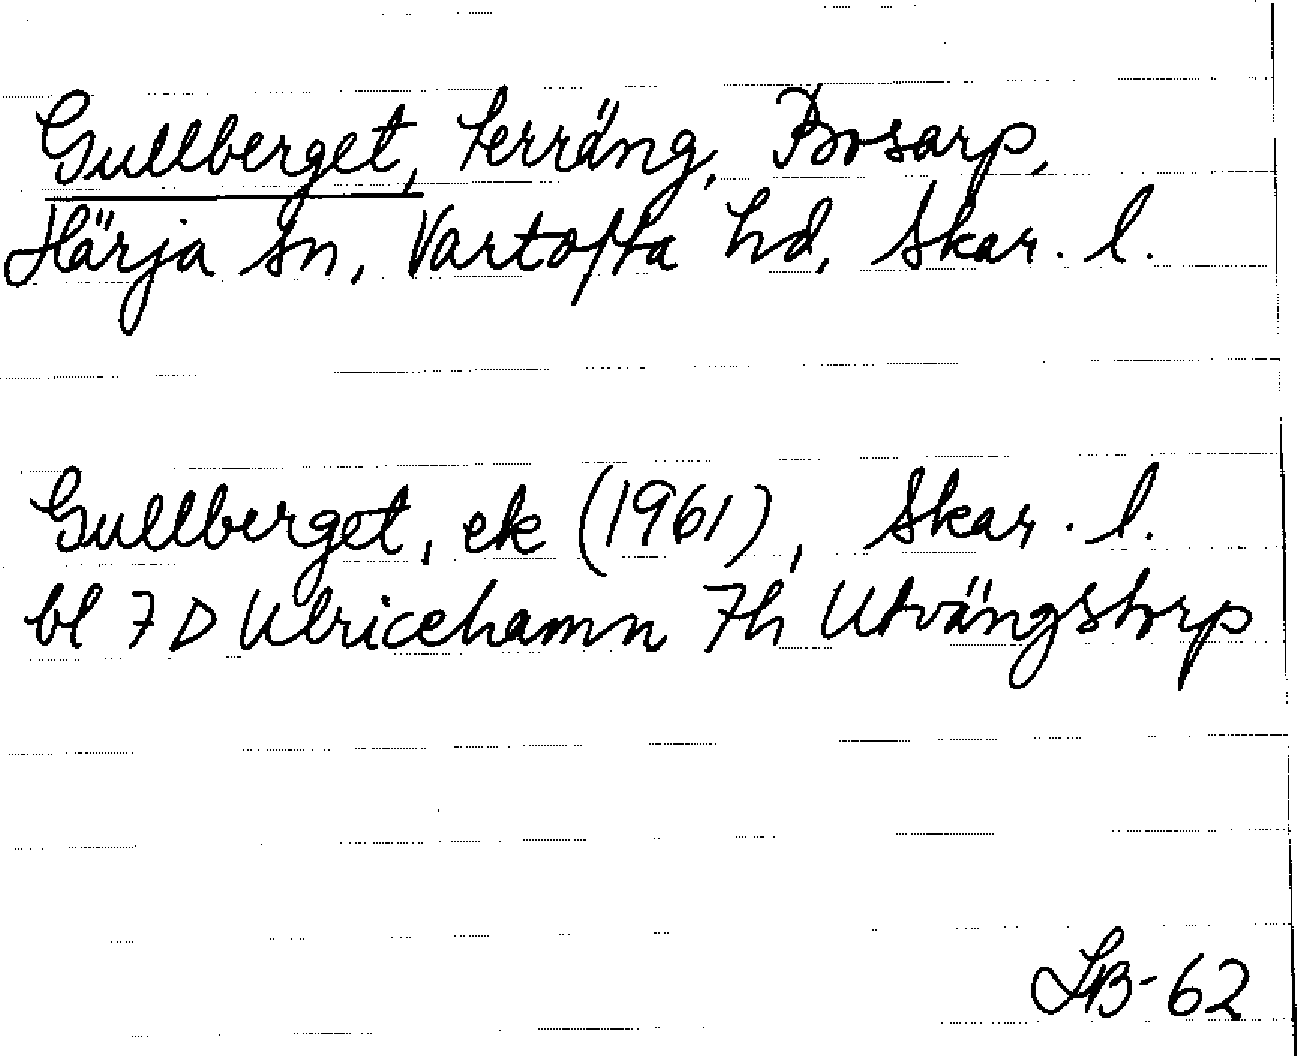 Gullberget, terräng, Bosarp,
Härja sn, Vartofta hd, Skar. l.
Gullberget, ek (1961), Skar. l.
bl 7 D Ulricehamn 7h Utvängstorp
-62